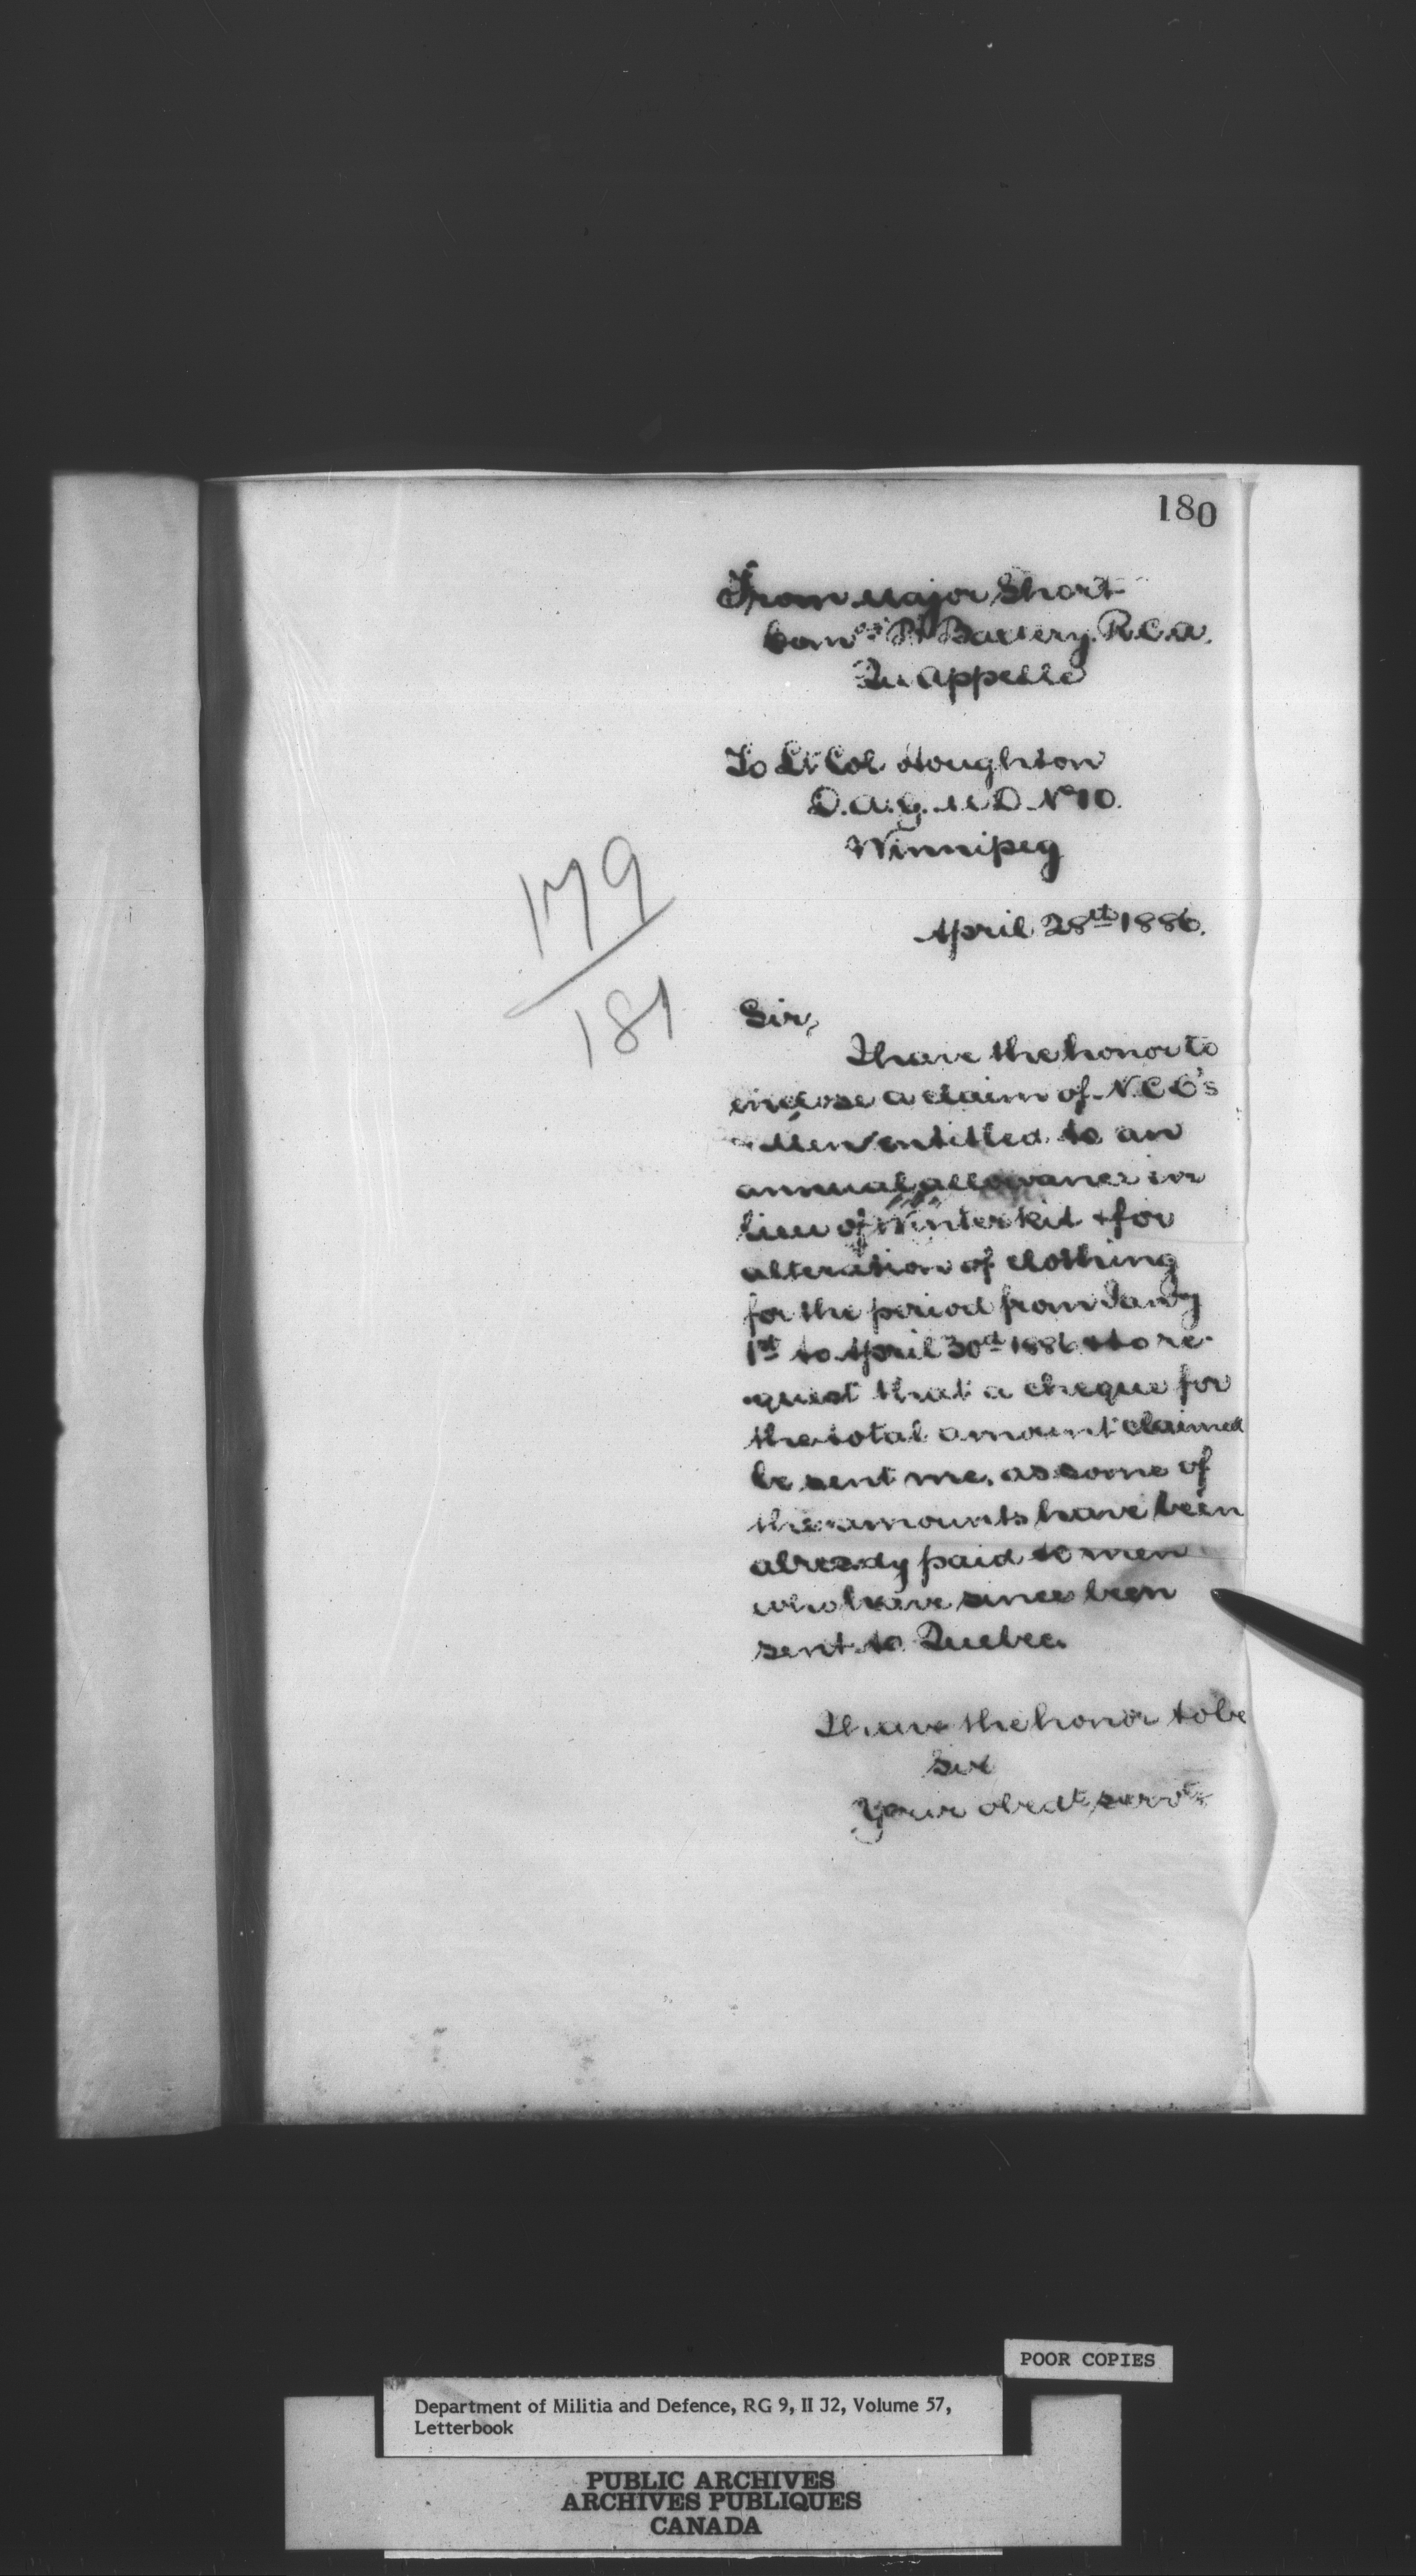 180
From Major Short
Com'd'g B Battery. R.C.A.
Qu'Appelle
To Lt Col Houghton
D.A.G. M.D. No 10.
Winnipeg
179
181
April 28th 1886.
Sir,
I have the honor to
enclose a claim of N.C.O's
& Men entitled to an
annual allowance in
lieu of Winter kit & for
alteration of clothing
for the period from Jan'y
1st to April 30th 1886 & to re-
quest that a cheque for
the total amount claimed
be sent me, as some of
the amounts have been
already paid to men
who have since been
sent to Quebec.
I have the honor to be
Sir
Your obedt servt
POOR COPIES
Department of Militia and Defence, RG 9, II J2, Volume 57,
Letterbook
PUBLIC ARCHIVES
ARCHIVES PUBLIQUES
CANADA